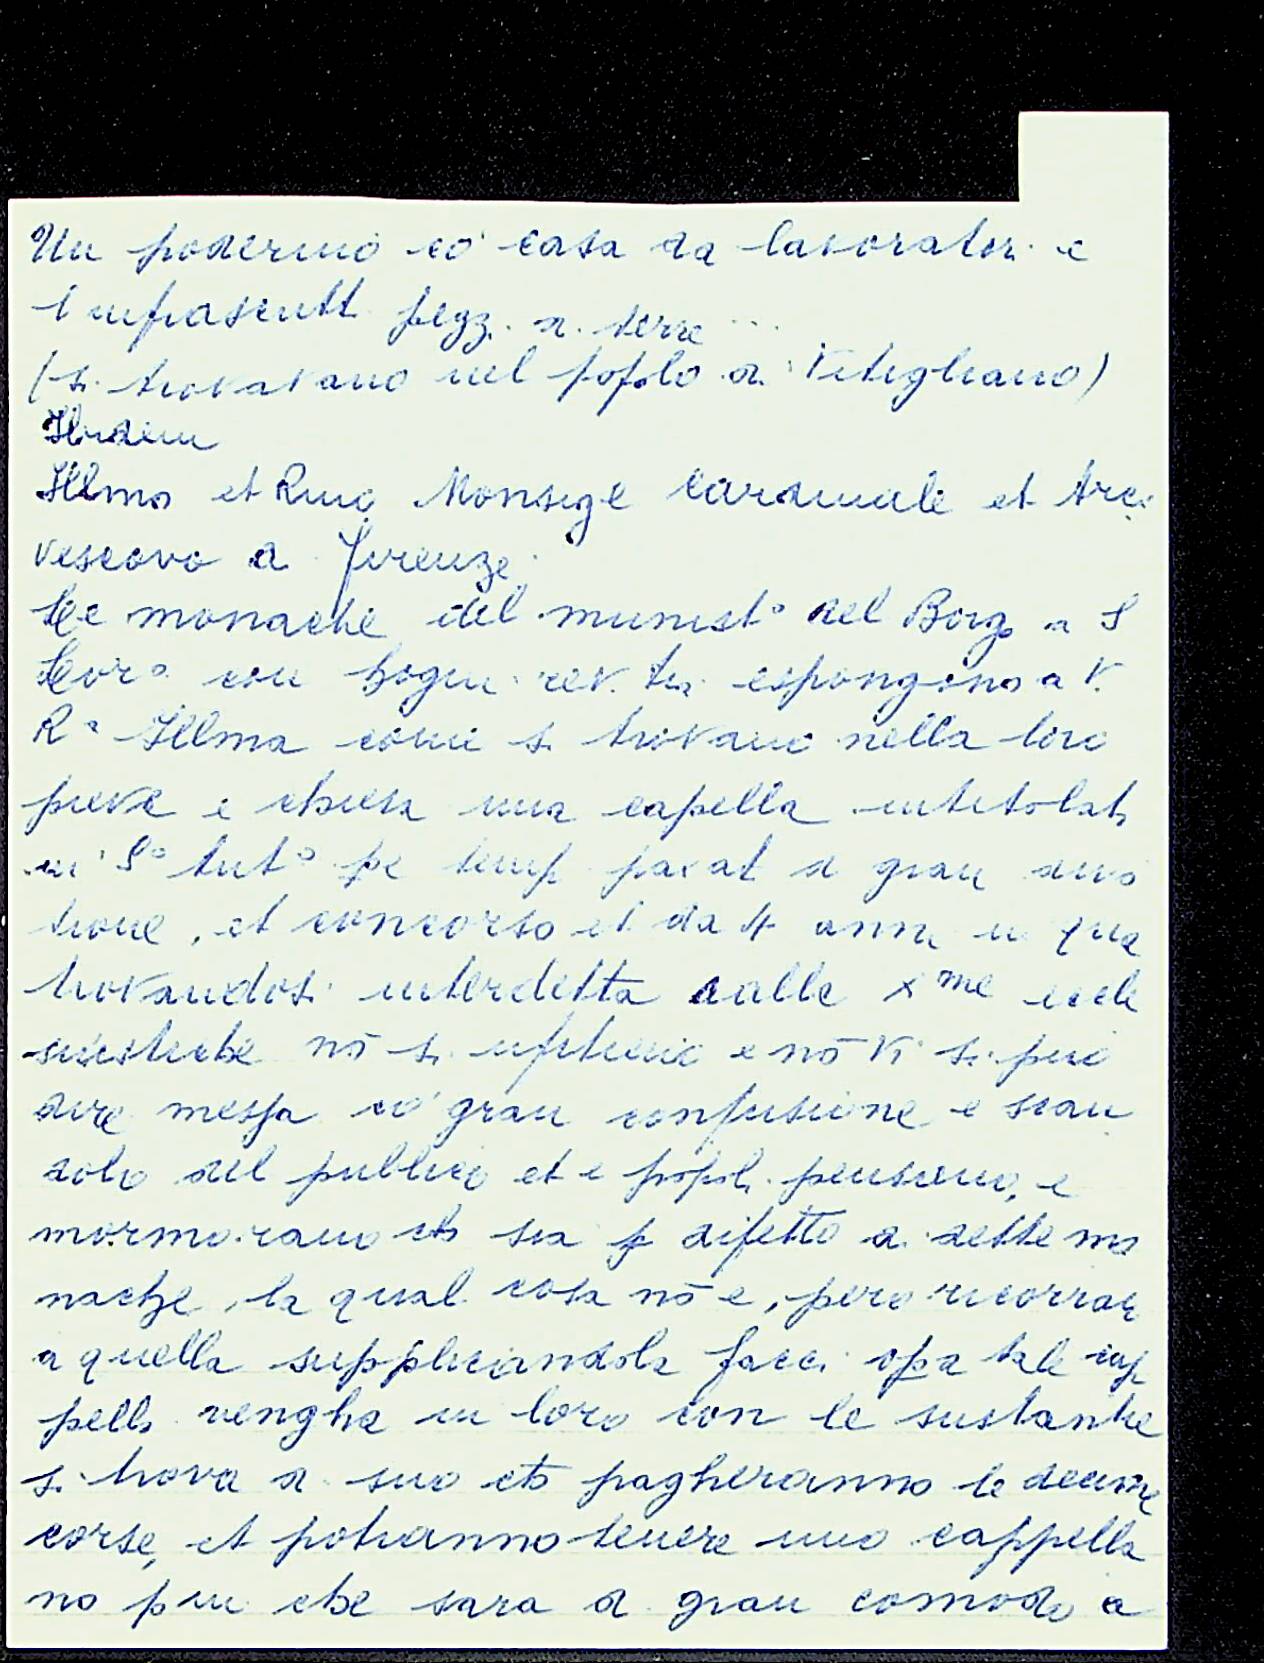 Un poderino cō casa da lavorator. e
l'infrascritt. pezz. di terre ...
(si trovavano nel popolo di Vitigliano)
Ibidem
Illmo et Rmo Monsigre Cardinale et Arci
vescovo di Firenze.
Le monache del munistº del Borgo a S
Lorº con hogni rev.tia espongono a V.
Rª Illma come si trovano nella loro
pieve e chiesa una capella intitolata
in Sº Antº pe temp. passat. di gran divo
tione, et concorso et da 4 anni in qua
trovandosi interdetta dalle xme eccle
siastiche nō si uffitiano e nō vi si puo
dire messa cō gran confusione e scan
dolo del publico et e popoli pensano, e
mormorano che sia p difetto di dette mo
nache, la qual cosa nō e, pero ricorran
a quella supplicandola facci opa tale cap
pella vengha in loro con le sustantie
si trova di suo che pagheranno le decime
corse, et potranno tenere uno cappella
no piu che sara di gran comodo a